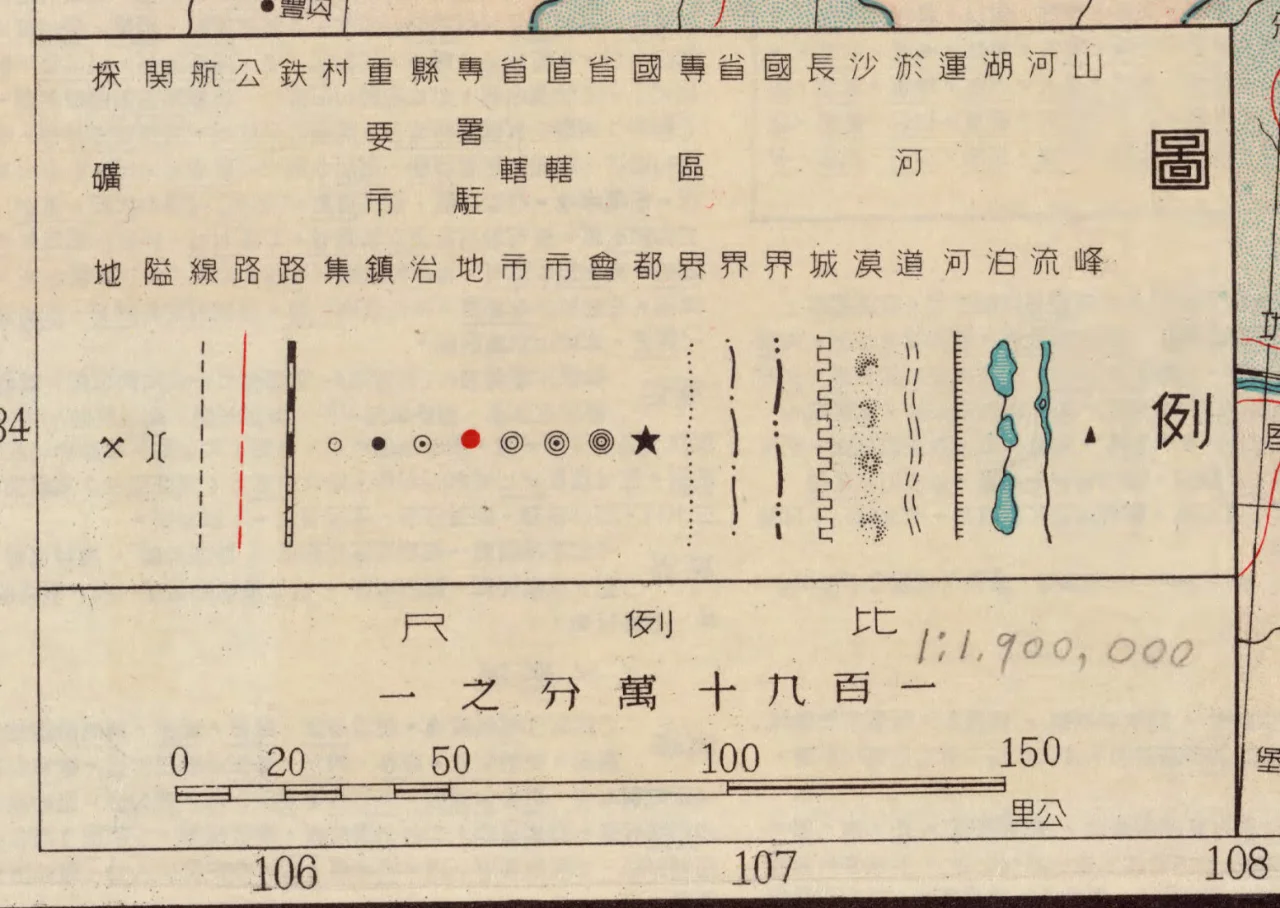 圖例
山峰
河流
湖泊
運河
淤河道
沙漠
長城
國界
省界
專區界
國都
省會
直轄市
省轄市
專署駐地
縣治
重要市鎮
村集
鉄路
公路
航線
関隘
採礦地
比例尺
1:1,900,000
一百九十萬分之一
0 20 50 100 150
公里
106 107 108